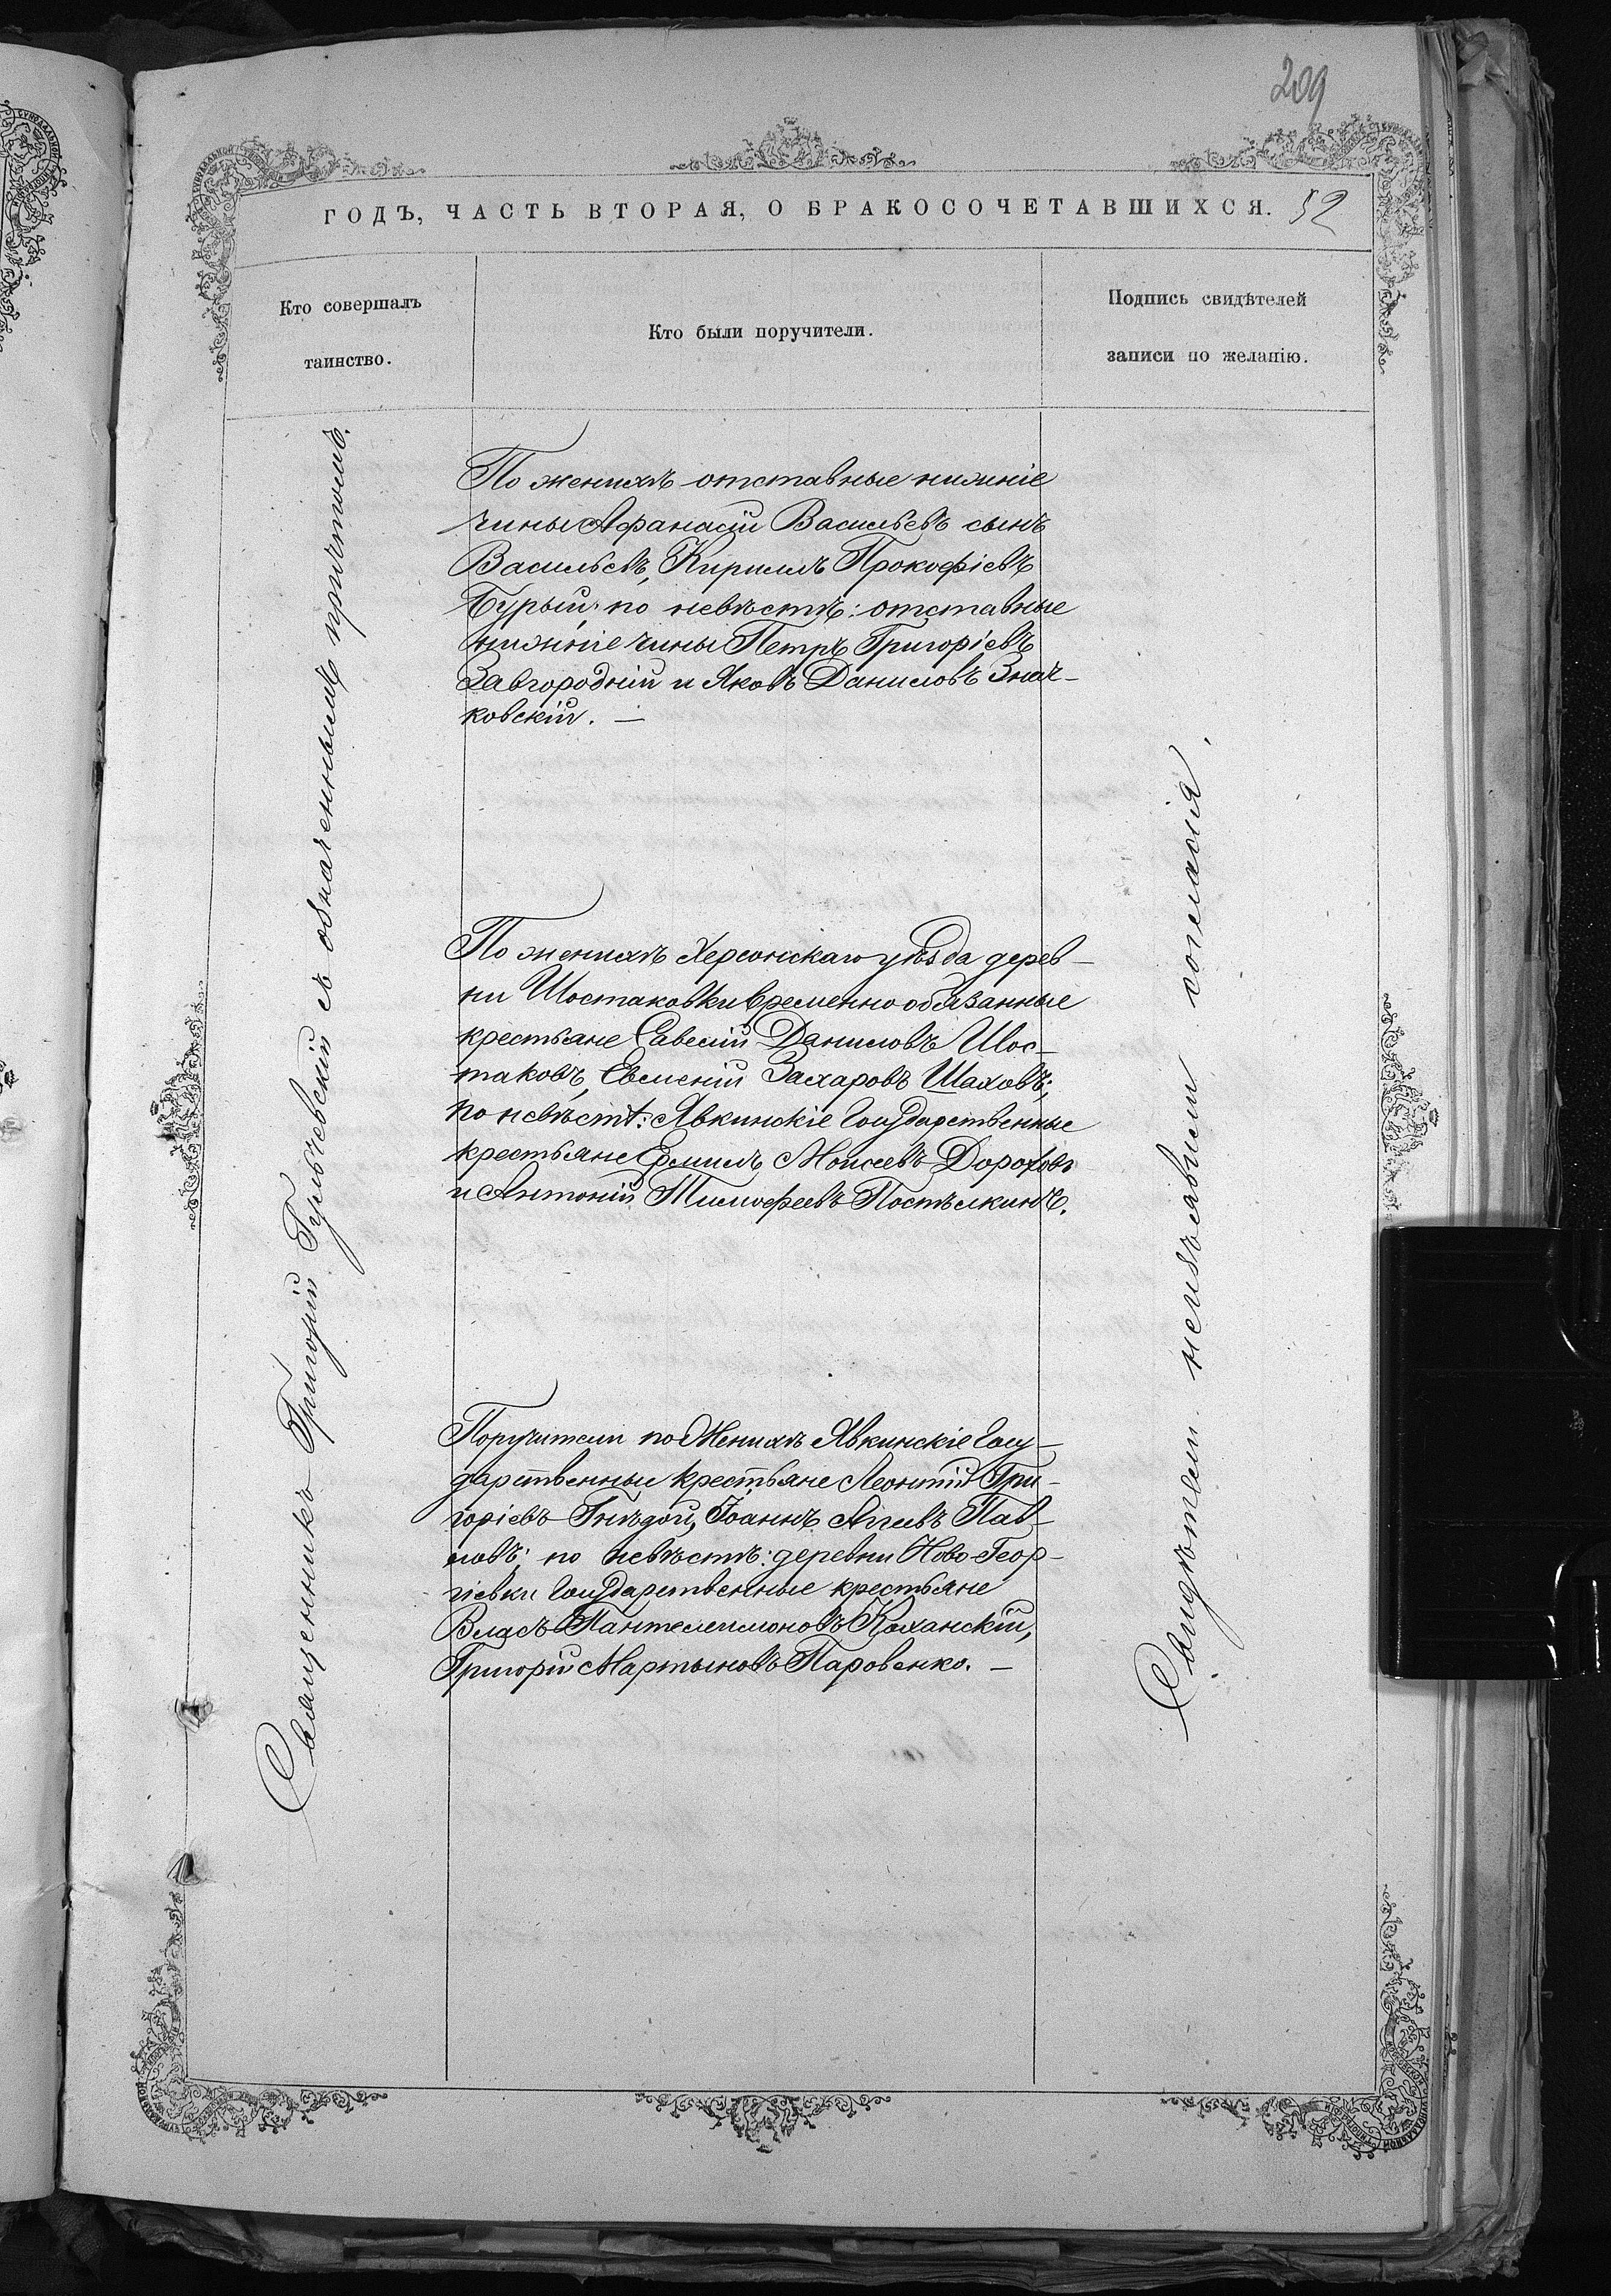 209
ГОДЪ, ЧАСТЬ ВТОРАЯ, О БРАКОСОЧЕТАВШИХСЯ. 52
Кто совершалъ
таинство.
Кто были поручители.
Подпись свидѣтелей
записи по желанію.
Священникъ Григорій Гульчевскій съ означеннымъ причтомъ.
По женихѣ отставные нижніе
чины Афанасій Васильевъ сынъ
Васильевъ, Кириллъ Прокофіевъ
Бурый; по невѣстѣ: отставные
нижніе чины Петръ Григоріевъ
Завгородній и Яковъ Даниловъ Знач-
ковскій. —
По женихѣ Херсонскаго уѣзда дерев-
ни Шостаковки временно обязанные
крестьяне Савелій Даниловъ Шос-
таковъ, Евменій Захаровъ Шаховъ;
по невѣстѣ: Явкинскіе государственные
крестьяне Ермилъ Моисеевъ Дороховъ
и Антоній Тимофеевъ Постѣлкинъ.
Поручители по Женихѣ Явкинскіе Госу-
дарственные крестьяне Леонтій Гри-
горіевъ Гнѣдой, Іоаннъ Агеевъ Пав-
ловъ; по невѣстѣ: деревни Ново-Геор-
гіевки Государственные крестьяне
Власъ Пантелеимоновъ Коханскій,
Григорій Мартыновъ Паровенко. —
Свидѣтели неизъявили согласія.